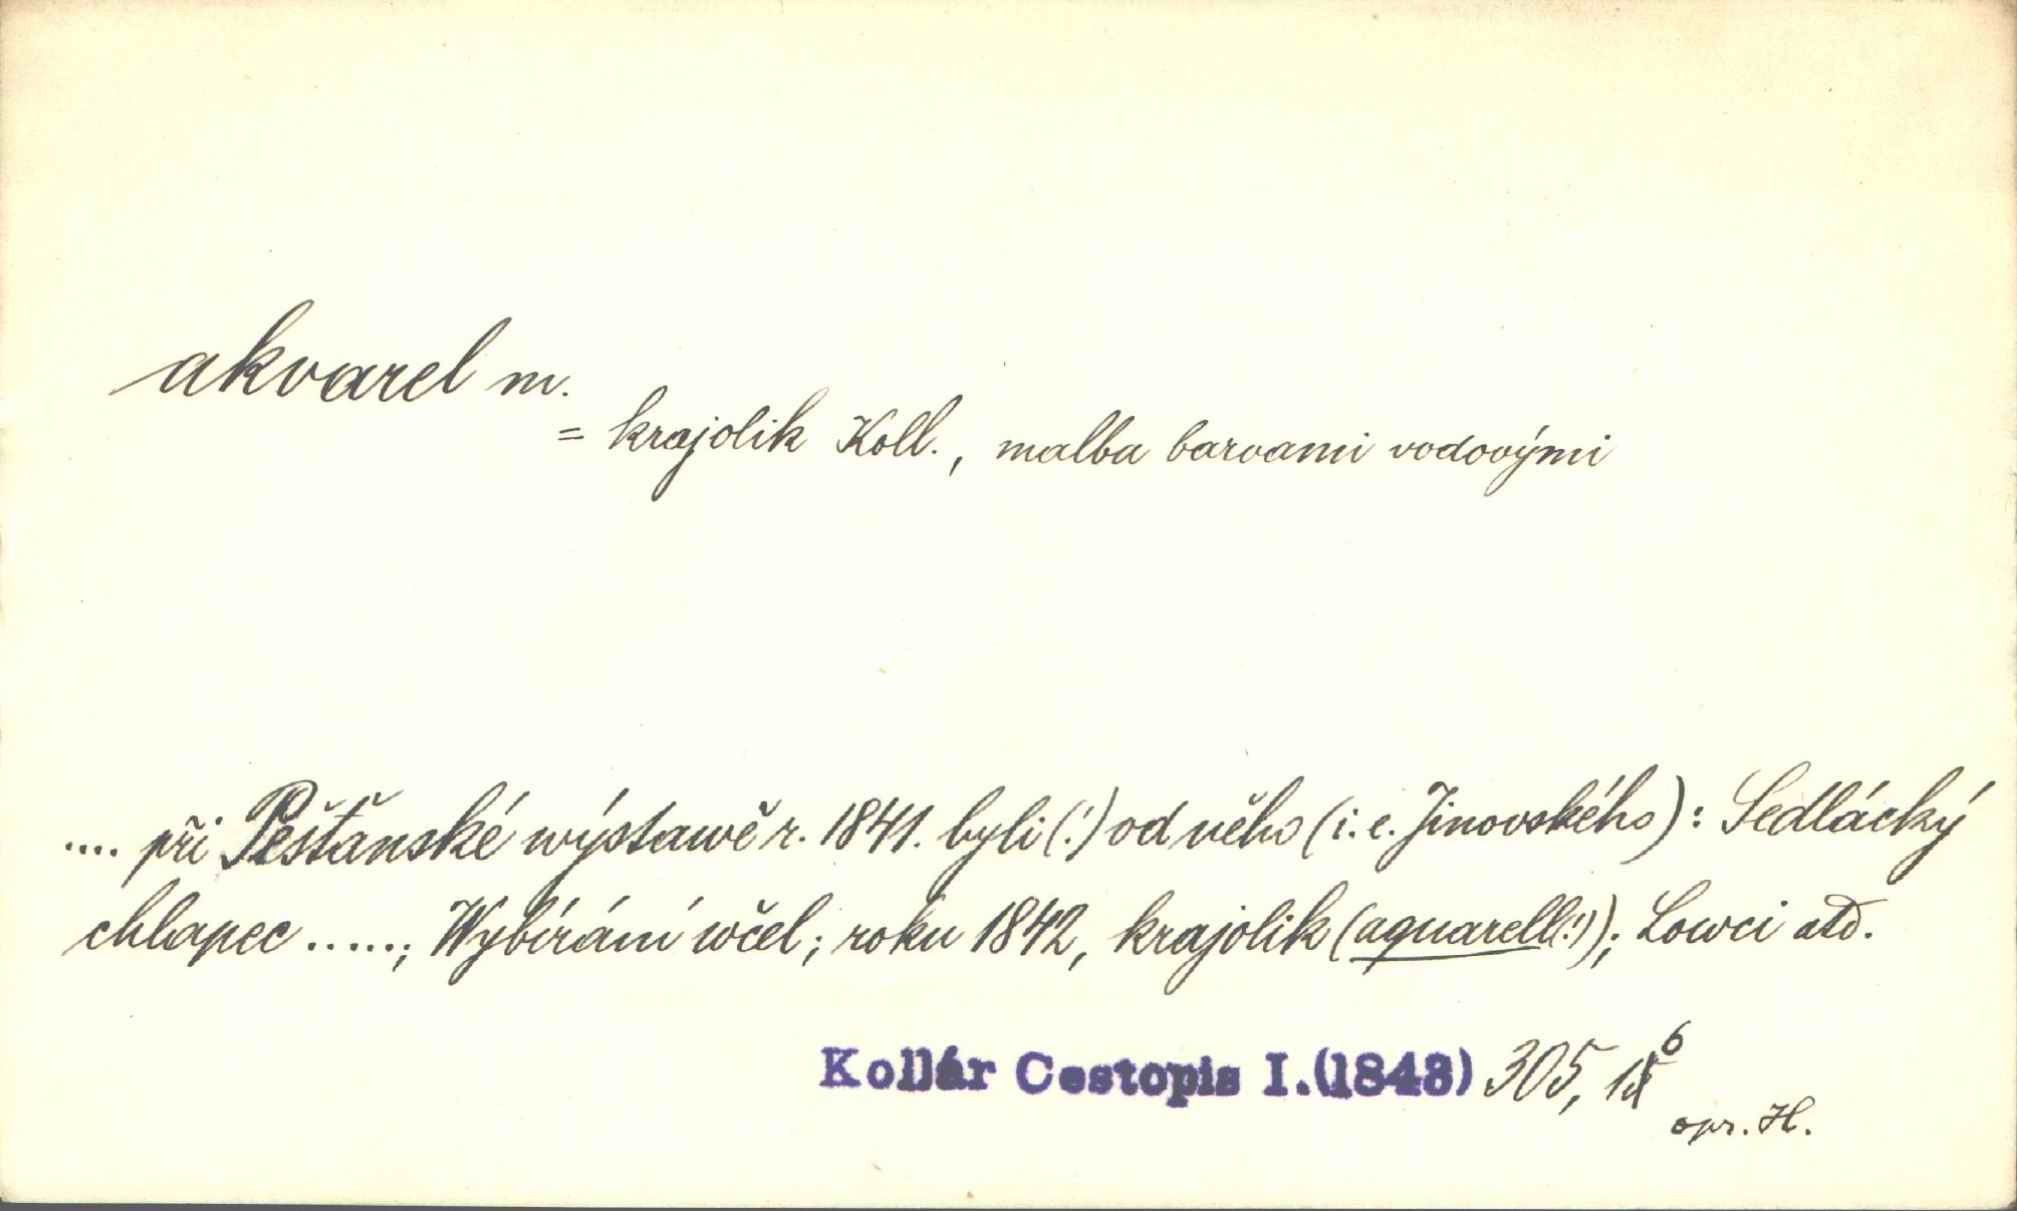 akvarel m.
= krajolik Koll., malba barvami vodovými
.... při Pešťanské wýstawě r. 1841. byli (!) od něho (i. e. Jinovského): Sedlácký
chlapec .....; Wybírání wčel; roku 1842, krajolik (aquarell(!)); Lowci atd.
Kollár Cestopis I.(1843) 305, 16
opr. H.